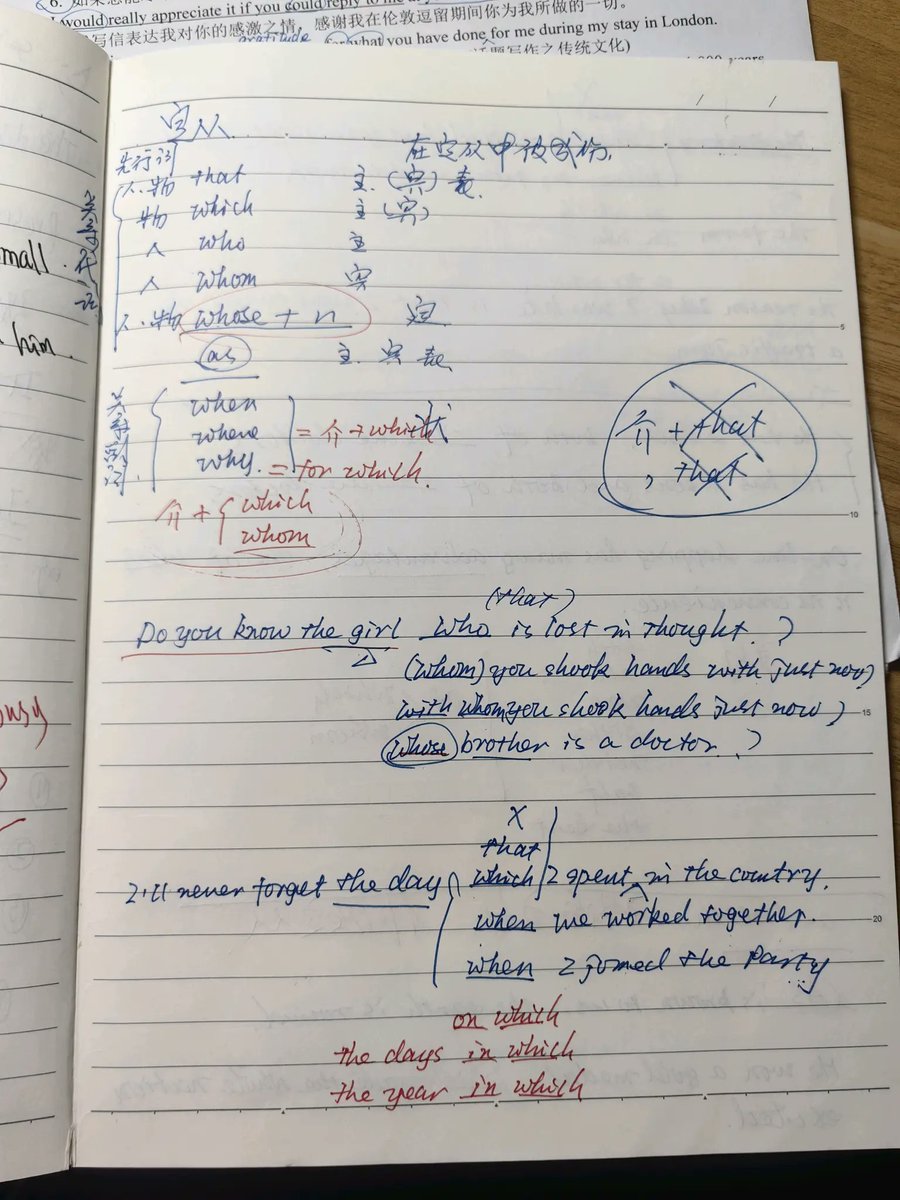 I would really appreciate it if you could reply to me
写信表达我对你的感激之情，感谢我在伦敦逗留期间你为我所做的一切。
gratitude for what you have done for me during my stay in London.
话题写作之传统文化)
定从
先行词 在定从中被成份.
人.物 that 主.(宾) 表.
物 which 主(宾)
人 who 主
人 whom 宾
人.物 whose + n 定
(as) 主.宾 表
关系代词
关系副词
when
where = 介+which 状
why. = for which.
介+that
, that
介+{which
whom
mall.
him.
(that)
Do you know the girl who is lost in thought.?
(whom) you shook hands with just now?
with whom you shook hands just now?
whose brother is a doctor.?
X
that
I'll never forget the day which I spent in the country.
when we worked together.
when I joined the Party
on which
the days in which
the year in which